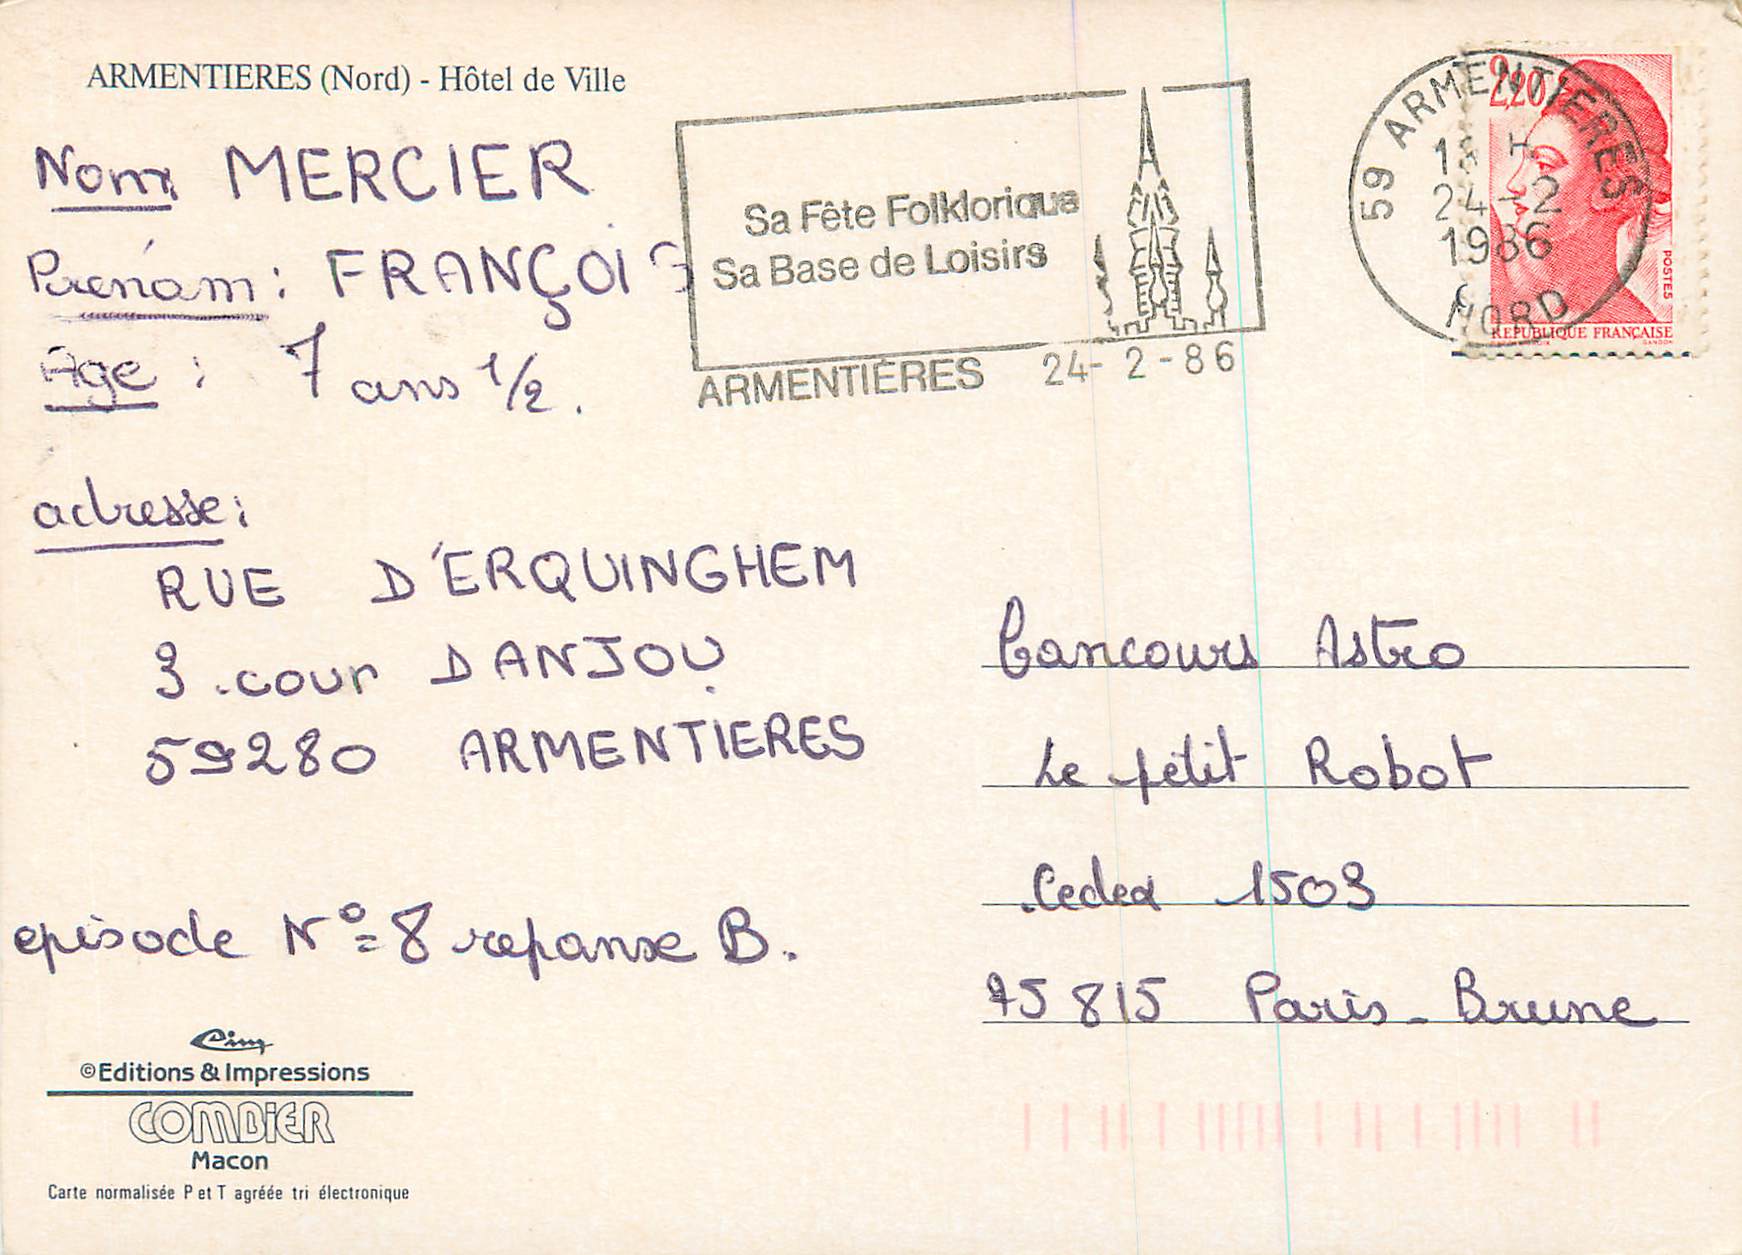 ARMENTIERES (Nord) - Hôtel de Ville
Nom MERCIER
Prénom : FRANÇOIS
Age : 7 ans 1/2.
adresse :
RUE D'ERQUINGHEM
3 .cour DANJOU
59280 ARMENTIERES
episode N°= 8 reponse B.
Cim
©Editions & Impressions
COMBIER
Macon
Carte normalisée P et T agréée tri électronique
Sa Fête Folklorique
Sa Base de Loisirs
ARMENTIÈRES 24-2-86
59 ARMENTIERES
H
24-2
1986
NORD
2,20
POSTES
REPUBLIQUE FRANÇAISE
GANDON
Concours Astro
Le petit Robot
.Cedex 1503
75815 Paris - Brune